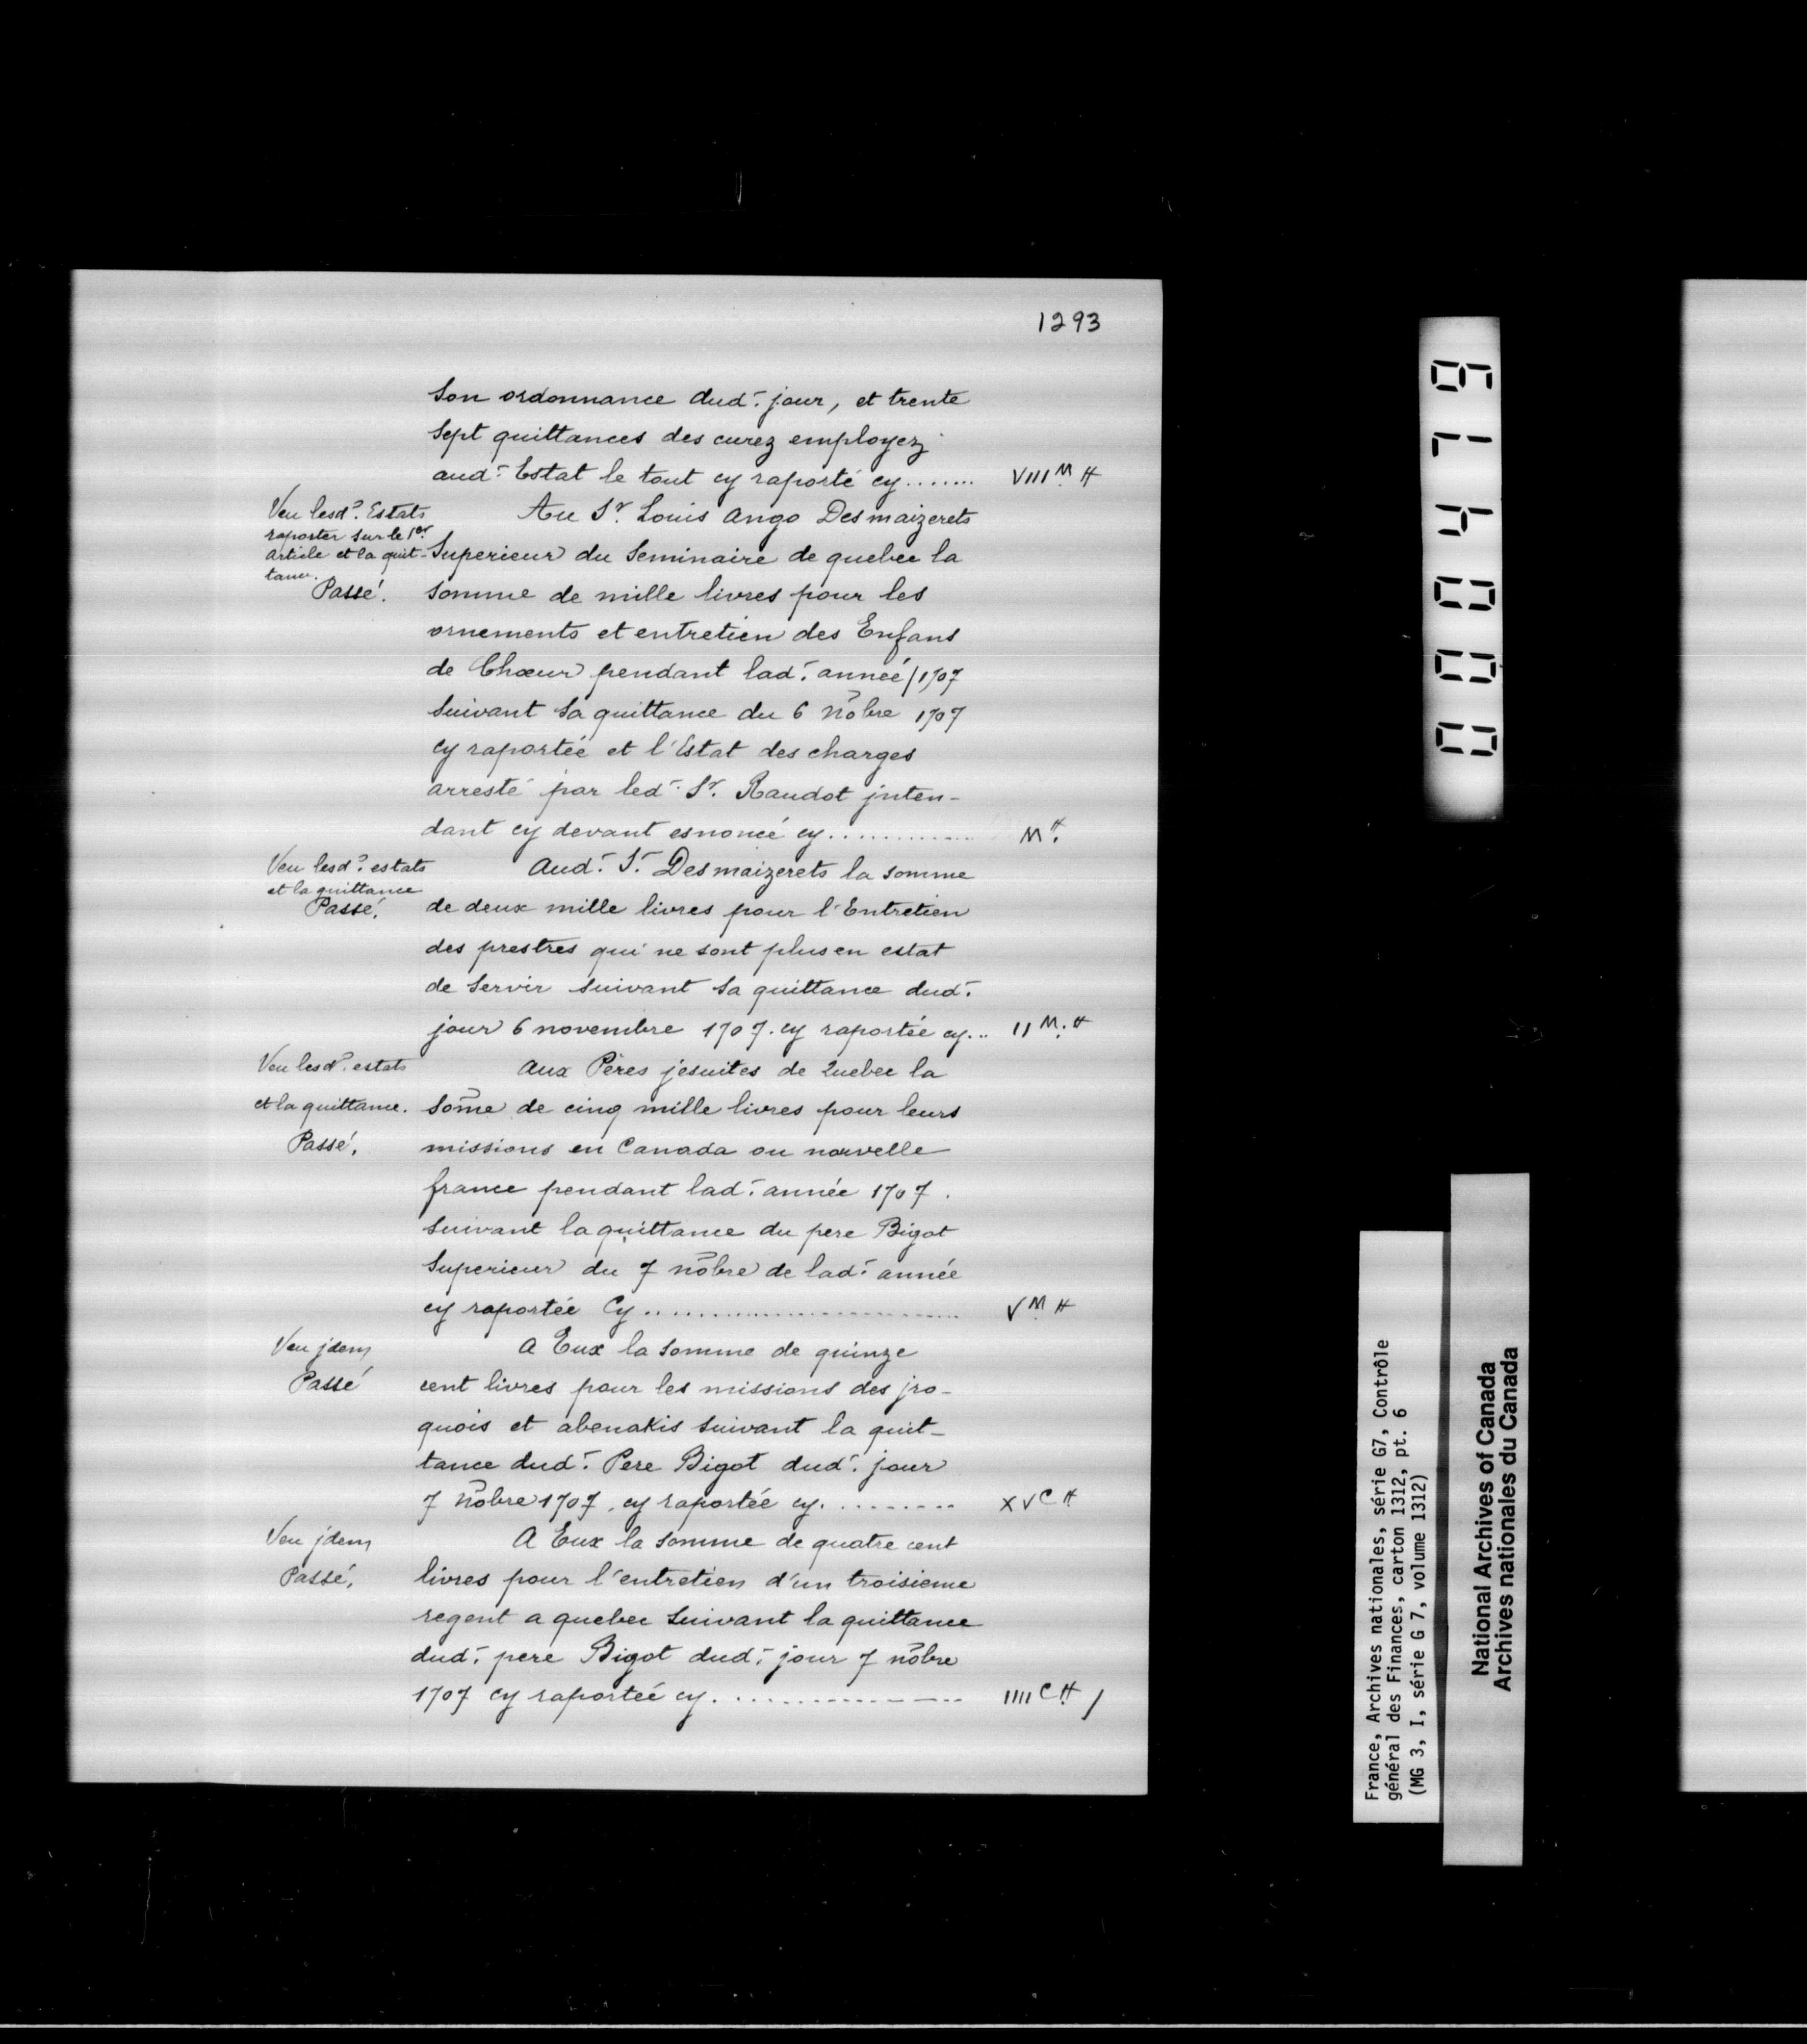 1293
son ordonnance dud. jour, et trente
sept quittances des curez employez
aud. Estat le tout cy raporté cy....... VIII M ₶
Veu lesd. Estats
raporter sur le 1er
article et la quit-
tance.
Passé.
Au Sr. Louis Ango Desmaizerets
Superieur du Seminaire de quebec la
somme de mille livres pour les
ornements et entretien des Enfans
de Chœur pendant lad. année/1707
suivant sa quittance du 6 nobre 1707
cy raportée et l'Estat des charges
arresté par led. Sr. Raudot jnten-
dant cy devant esnoncé cy............. M ₶
Veu lesd. estats
et la quittance
Passé.
Aud. Sr. Desmaizerets la somme
de deux mille livres pour l'Entretien
des prestres qui ne sont plus en estat
de servir suivant sa quittance dud.
jour 6 novembre 1707. cy raportée cy... II M. ₶
Veu lesd. estats
et la quittance.
Passé.
Aux Pères jesuites de Quebec la
some de cinq mille livres pour leurs
missions en Canada ou nouvelle
france pendant lad. année 1707.
suivant la quittance du pere Bigot
Superieur du 7 nobre de lad. année
cy raportée Cy........................ V M ₶
Veu jdem
Passé
A Eux la somme de quinze
cent livres pour les missions des jro-
quois et abenakis suivant la quit-
tance dud. Pere Bigot dud. jour
7 nobre 1707. cy raportée cy.......... XV C ₶
Veu jdem
Passé.
A Eux la somme de quatre cent
livres pour l'entretien d'un troisieme
regent a quebec suivant la quittance
dud. pere Bigot dud. jour 7 nobre
1707 cy raportée cy................. IIII C ₶ /
00479
France, Archives nationales, série G7, Contrôle
général des Finances, carton 1312, pt. 6
(MG 3, I, série G 7, volume 1312)
National Archives of Canada
Archives nationales du Canada